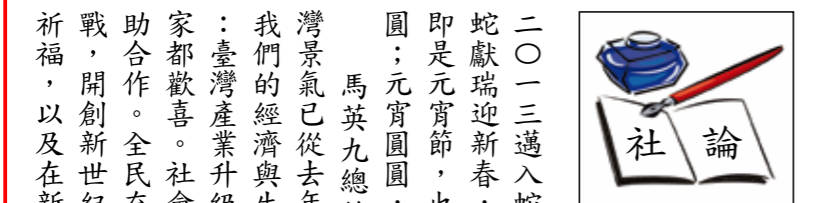 社論
二〇一三邁入蛇
蛇獻瑞迎新春，
即是元宵節，也
圓；元宵圓圓，
馬英九總
灣景氣已從去年
我們的經濟與生
：臺灣產業升級
家都歡喜。社會
助合作。全民
戰，開創新世紀
祈福，以及在新